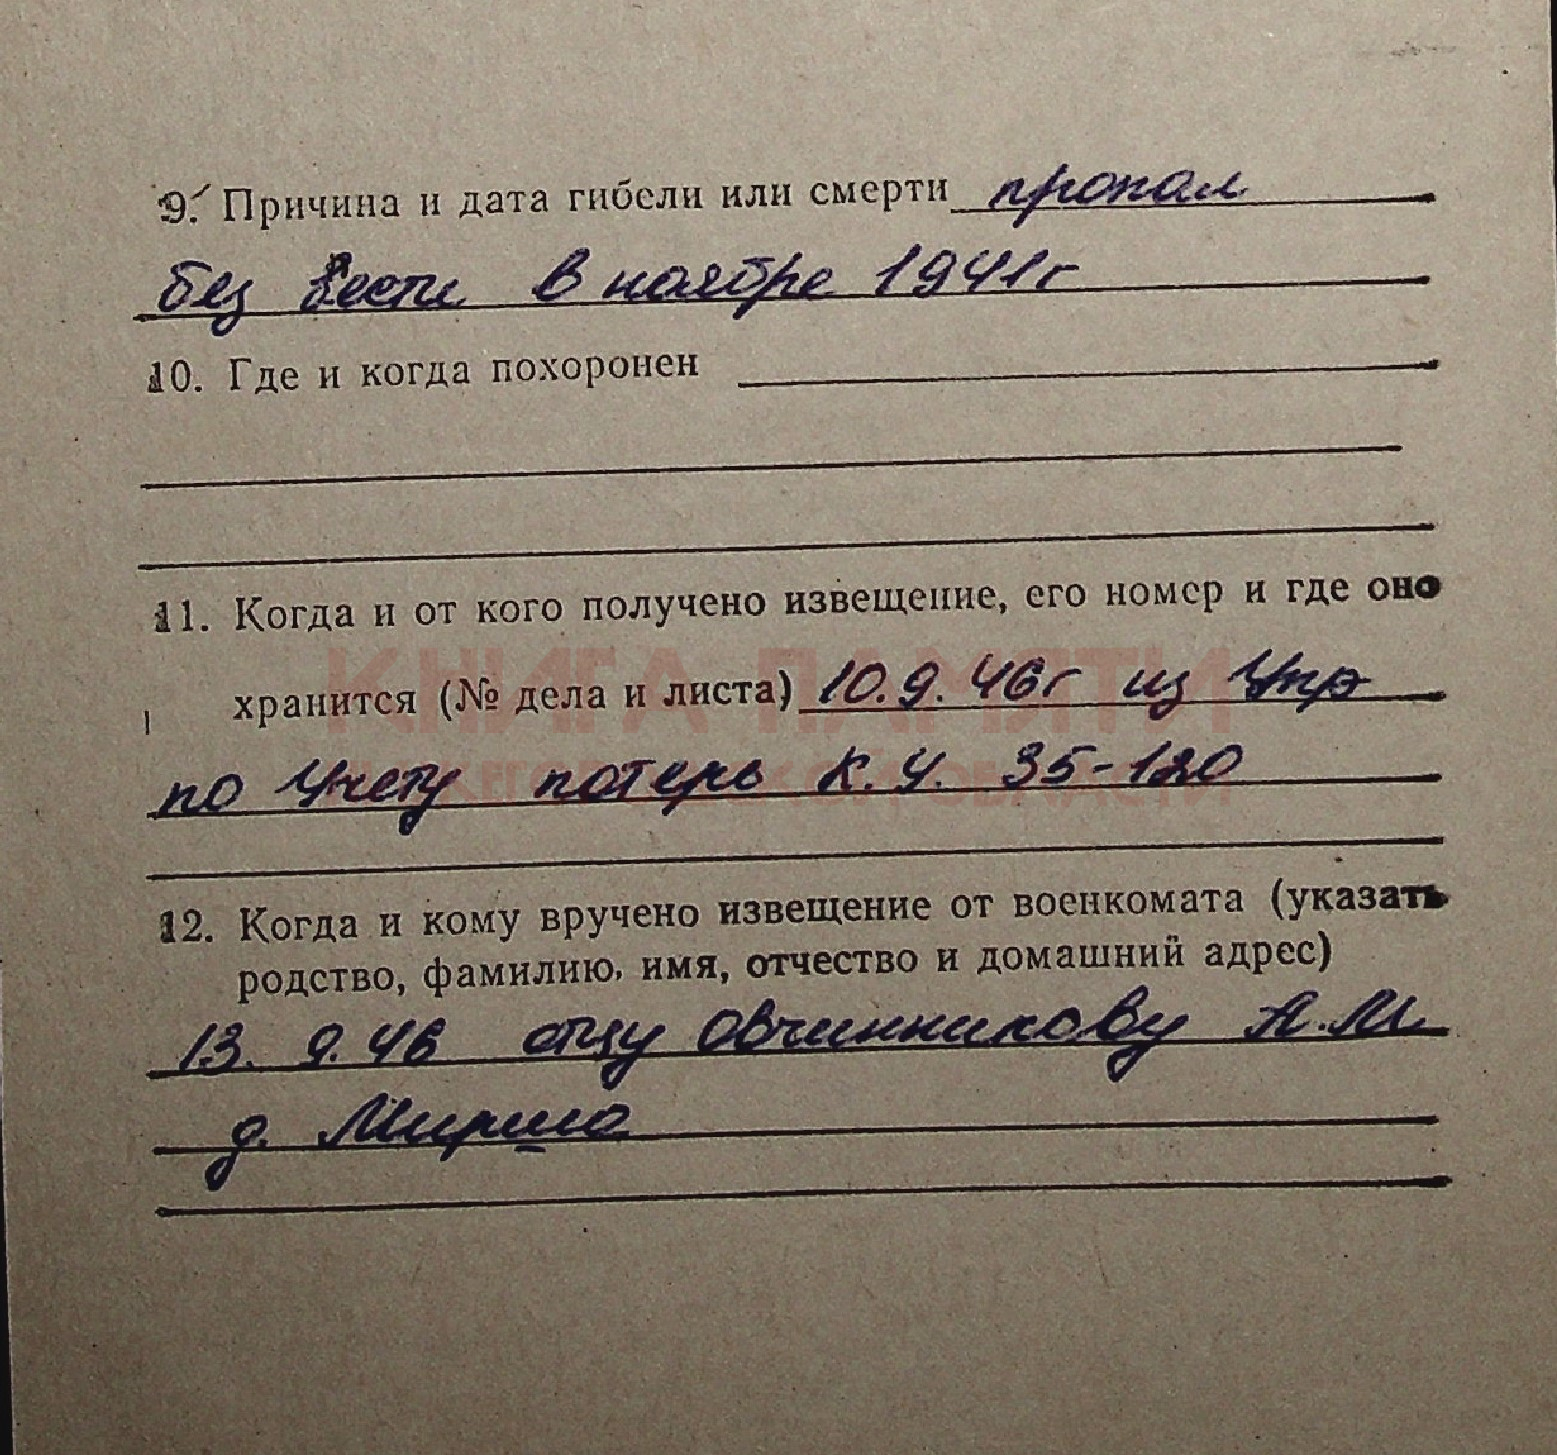 9. Причина и дата гибели или смерти пропал
без вести в ноябре 1941г
10. Где и когда похоронен
11. Когда и от кого получено извещение, его номер и где оно
КНИГА ПАМЯТИ
хранится (№ дела и листа) 10.9.46г из Упр
по Учету потерь к.у. 35-120
12. Когда и кому вручено извещение от военкомата (указать
родство, фамилию, имя, отчество и домашний адрес)
13. 9.46 отцу Овчинникову А.М.
д.